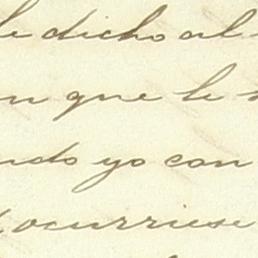 le dicho al
n que le
ndo yo con
ocurriese